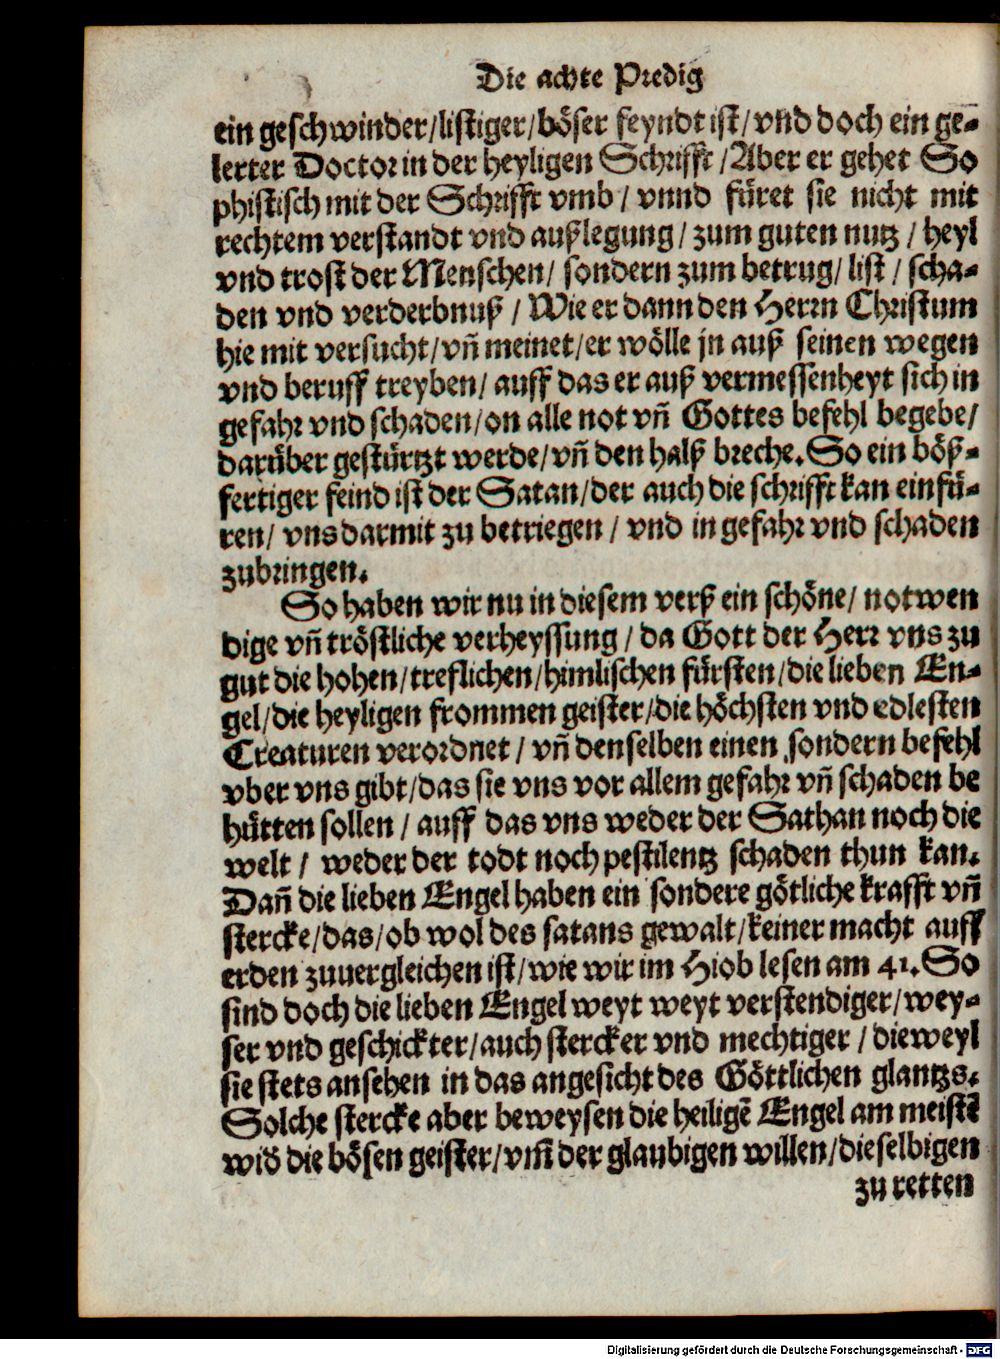 Die achte Predig
ein geschwinder/listiger/böser feyndt ist/vnd doch ein ge-
lerter Doctor in der heyligen Schrifft/Aber er gehet So
phistisch mit der Schrifft vmb/vnnd füret sie nicht mit
rechtem verstandt vnd außlegung/zum guten nutz/heyl
vnd trost der Menschen/sondern zum betrug/list/scha-
den vnd verderbnuß/Wie er dann den Herrn Christum
hie mit versucht/vñ meinet/er wölle jn auß seinen wegen
vnd beruff treyben/auff das er auß vermessenheyt sich in
gefahr vnd schaden/on alle not vñ Gottes befehl begebe/
darüber gestürtzt werde/vñ den halß breche. So ein böß-
fertiger feind ist der Satan/der auch die schrifft kan einfü-
ren/vns darmit zu betriegen/vnd in gefahr vnd schaden
zubringen.
So haben wir nu in diesem verß ein schöne/notwen
dige vñ tröstliche verheyssung/da Gott der Herr vns zu
gut die hohen/treflichen/himlischen fürsten/die lieben En-
gel/die heyligen frommen geister/die höchsten vnd edlesten
Creaturen verordnet/vñ denselben einen sondern befehl
vber vns gibt/das sie vns vor allem gefahr vñ schaden be
hütten sollen/auff das vns weder der Sathan noch die
welt/weder der todt noch pestilentz schaden thun kan.
Dañ die lieben Engel haben ein sondere götliche krafft vñ
stercke/das/ob wol des satans gewalt/keiner macht auff
erden zuuergleichen ist/wie wir im Hiob lesen am 41. So
sind doch die lieben Engel weyt weyt verstendiger/wey-
ser vnd geschickter/auch stercker vnd mechtiger/dieweyl
sie stets ansehen in das angesicht des Göttlichen glantzs.
Solche stercke aber beweysen die heiligē Engel am meistē
wid᷑ die bösen geister/vm̃ der glaubigen willen/dieselbigen
zu retten
Digitalisierung gefördert durch die Deutsche Forschungsgemeinschaft - DFG